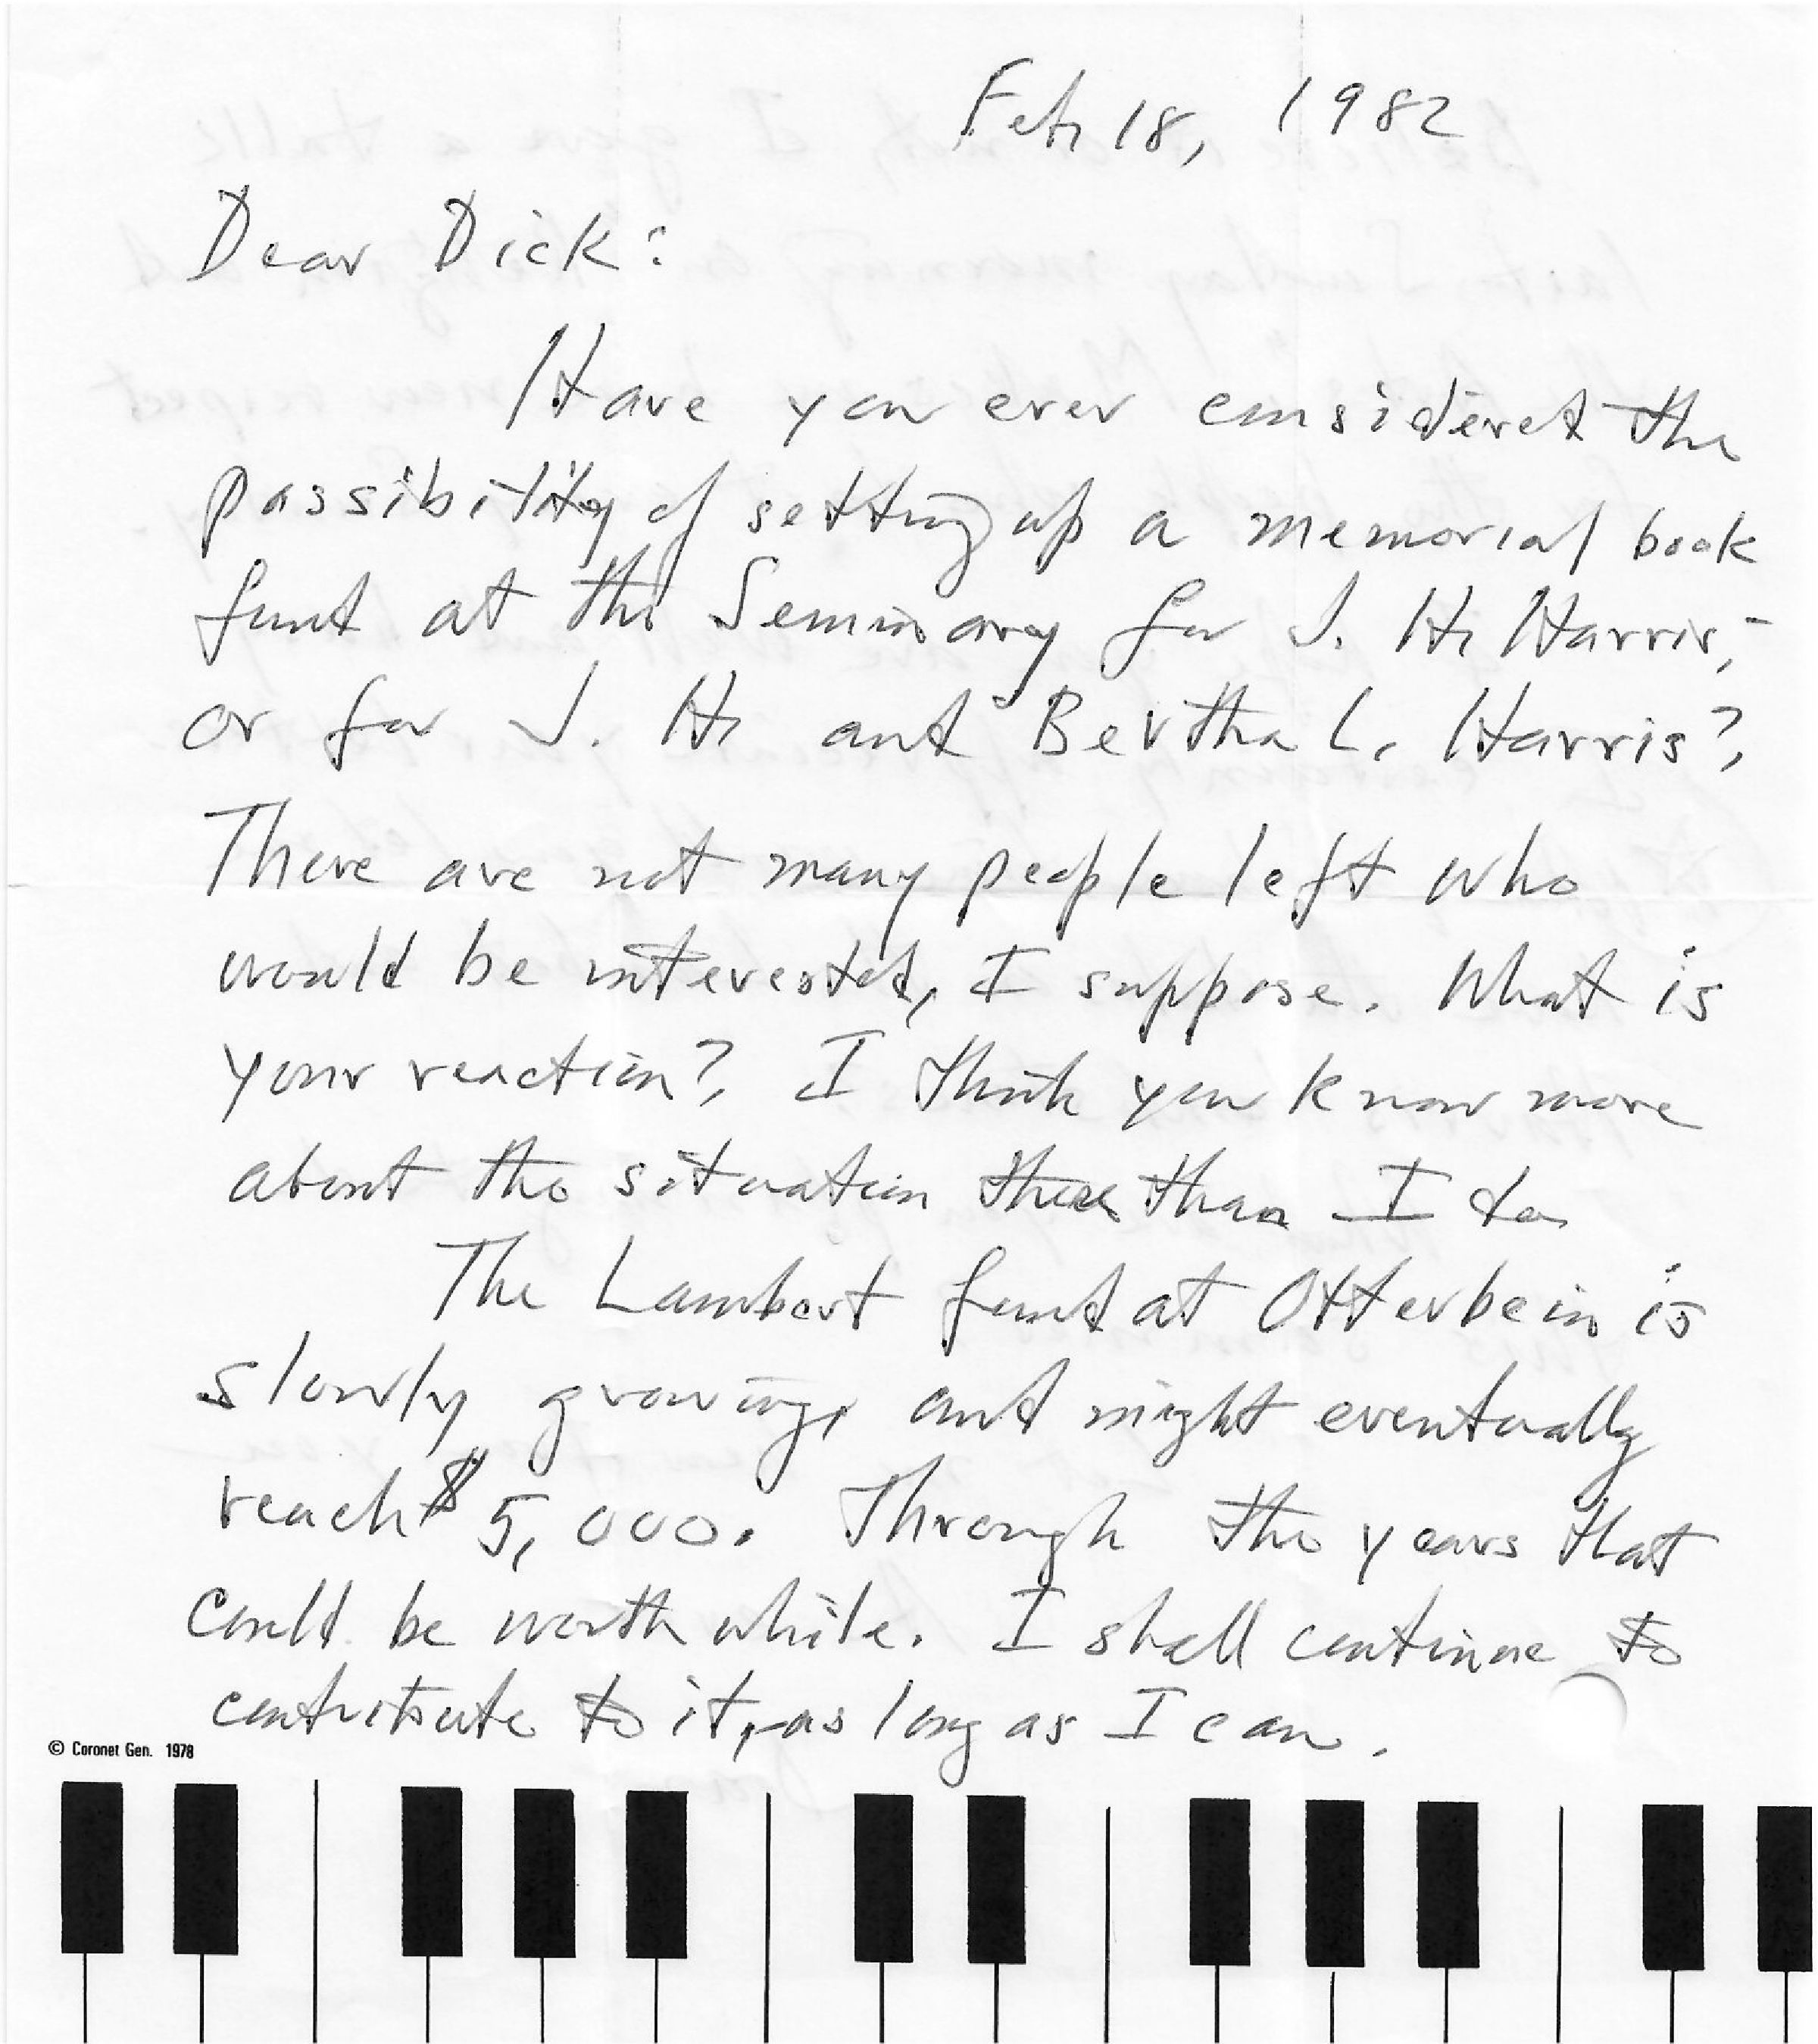 Feb 18, 1982
Dear Dick:
Have you ever considered the
possibility of setting up a memorial book
fund at the Seminary for J. H. Harris,-
or for J. H. and Bertha L. Harris?
There are not many people left who
would be interested, I suppose. What is
your reaction? I think you know more
about the situation there than I do
The Lambert fund at Otterbein is
slowly growing, and might eventually
reach $5,000. Through the years that
could be worth while. I shall continue to
contribute to it,-as long as I can.
© Coronet Gen. 1978